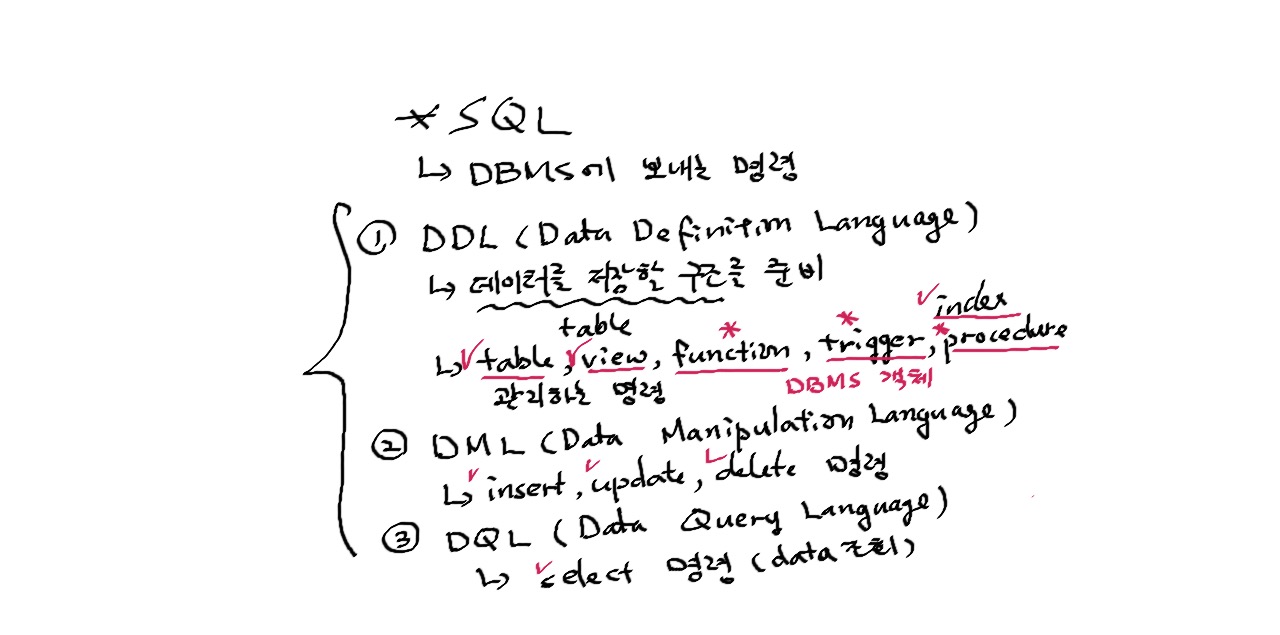 * SQL
↳ DBMS에 보내는 명령
① DDL (Data Definition Language)
↳ 데이터를 저장할 구조를 준비
table
✓index
↳ ✓table, ✓view, *function, *trigger, *procedure
DBMS 객체
관리하는 명령
② DML (Data Manipulation Language)
↳ ✓insert, ✓update, ✓delete 명령
③ DQL (Data Query Language)
↳ ✓select 명령 (data 조회)